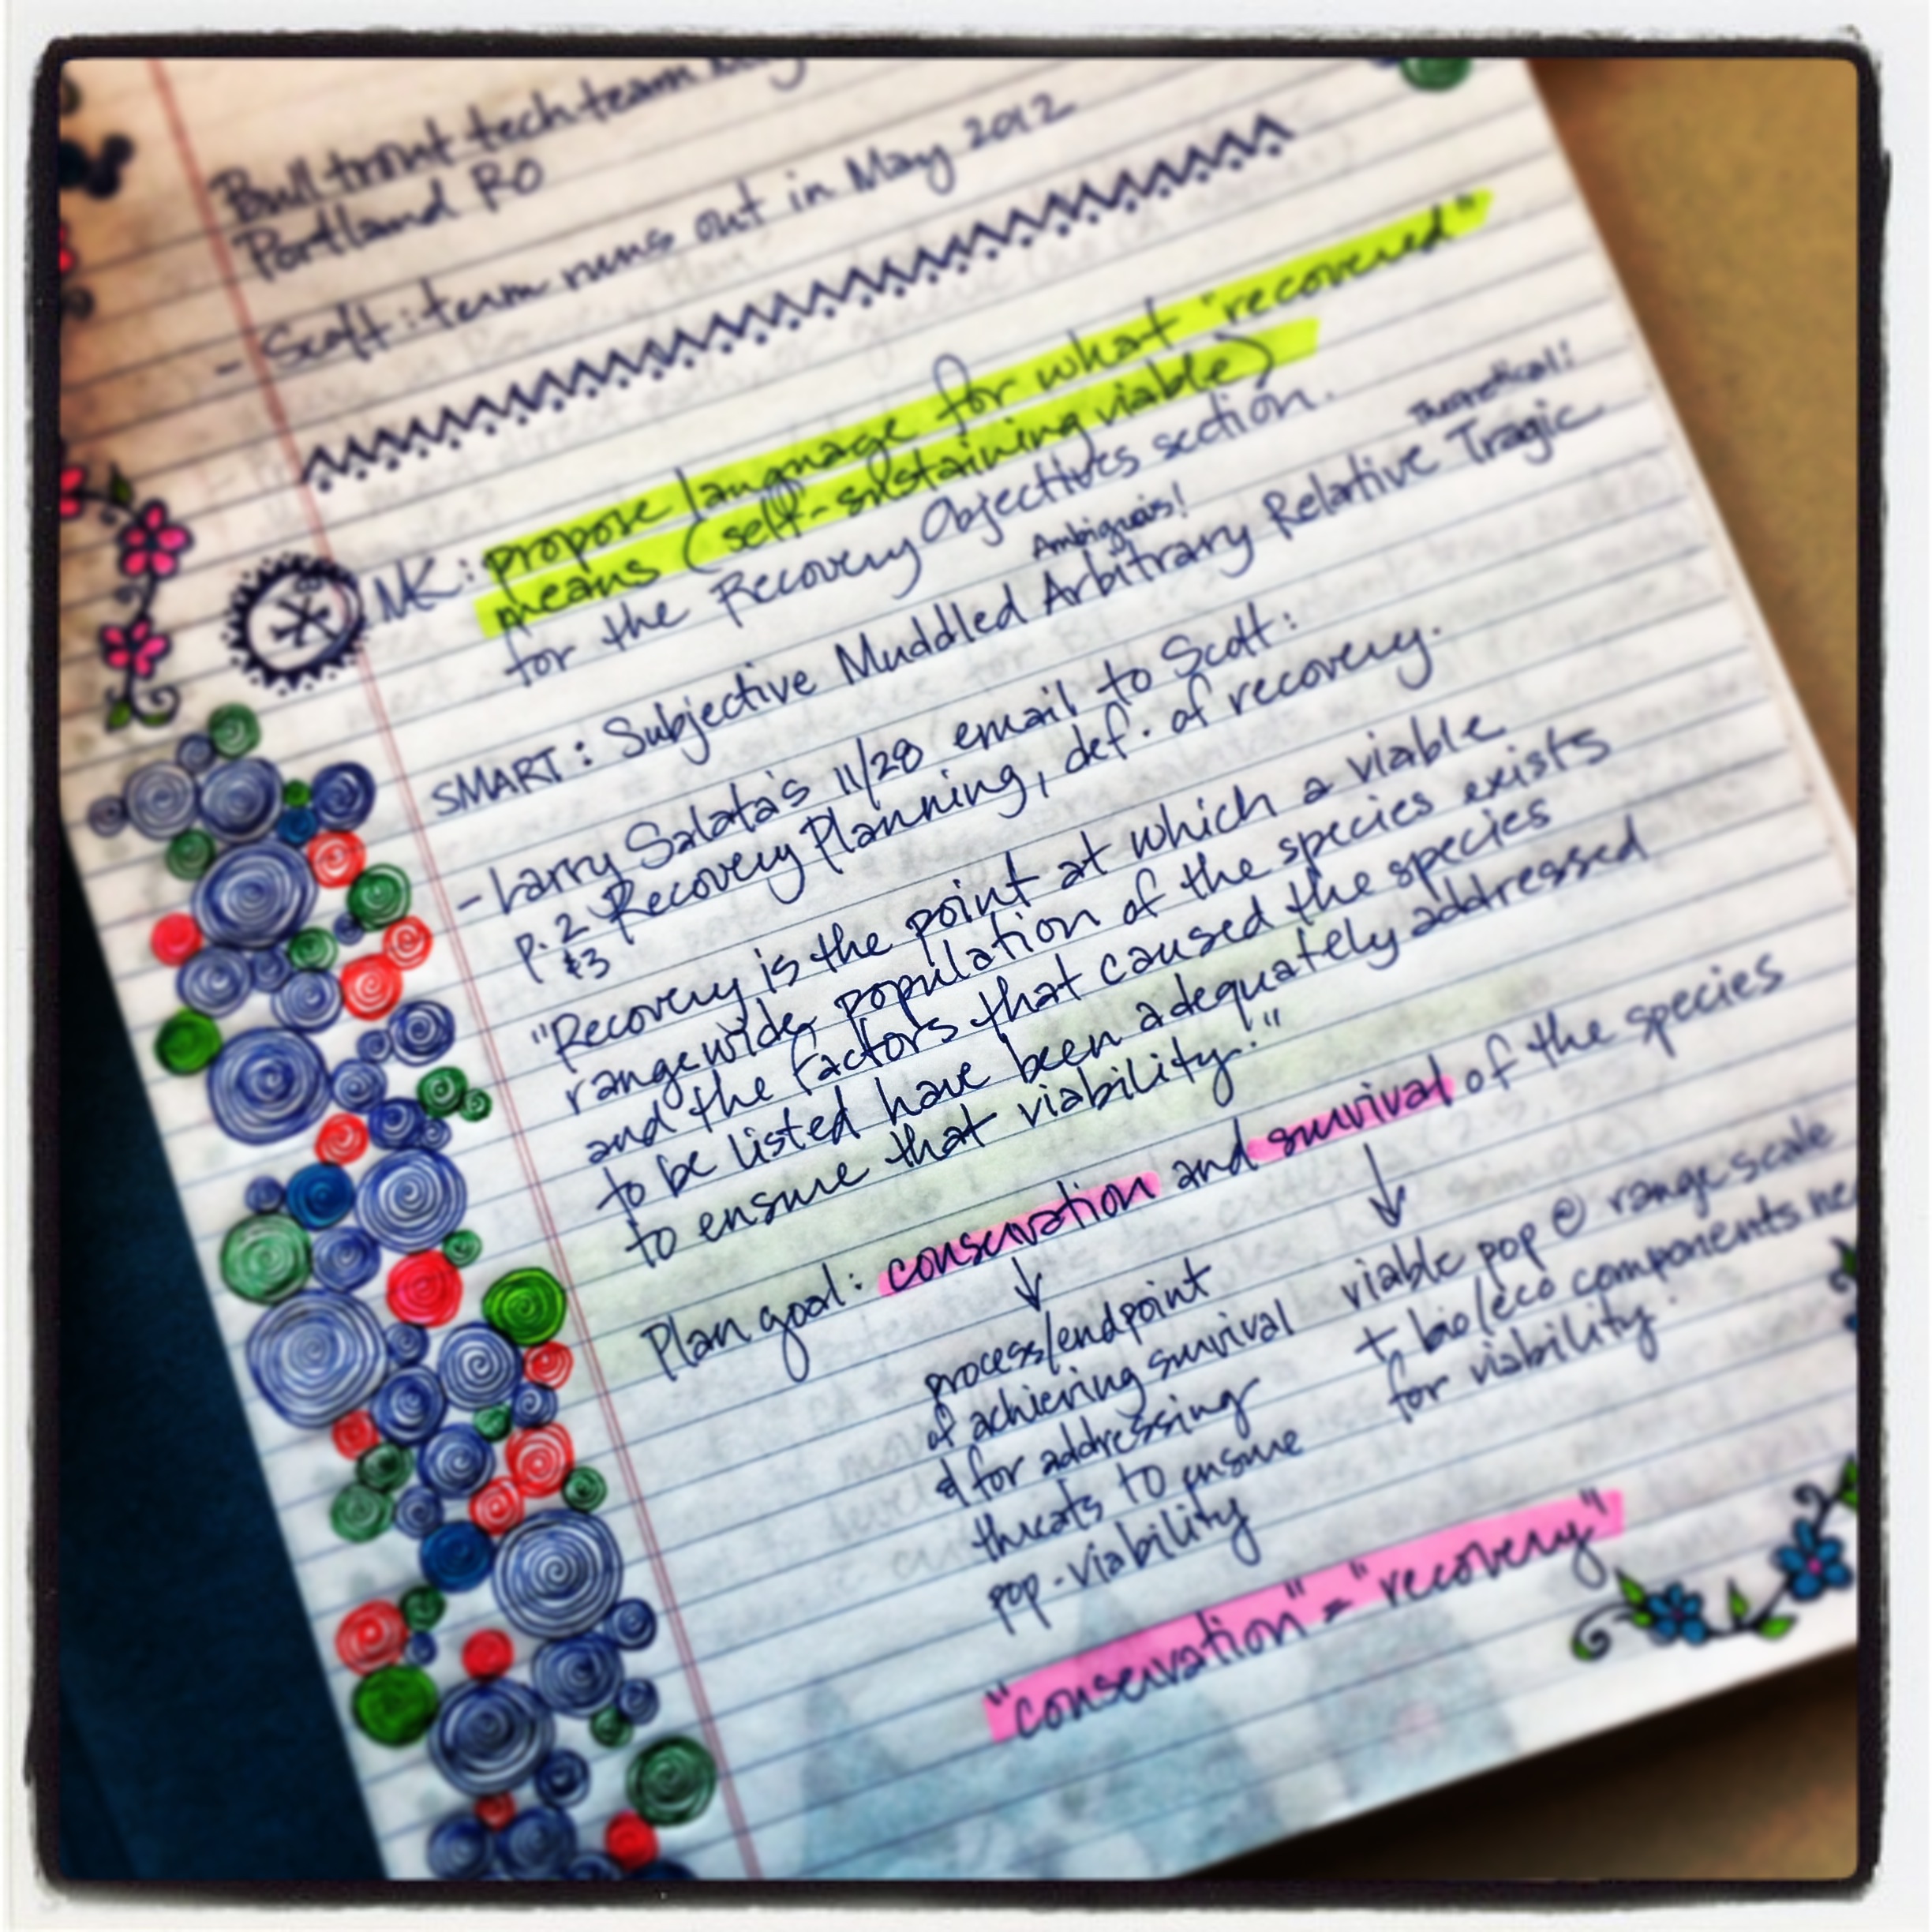 Bull trout tech team
Portland RO
- Scott: term runs out in May 2012
NK: propose language for what "recovered"
means (self-sustaining viable)
for the Recovery Objectives section.
Ambiguous!
Theoretical!
SMART: Subjective Muddled Arbitrary Relative Tragic
- Larry Salata's 11/28 email to Scott:
p. 2 Recovery Planning, def. of recovery.
&3
"Recovery is the point at which a viable
rangewide population of the species exists
and the factors that caused the species
to be listed have been adequately addressed
to ensure that viability."
Plan goal: conservation and survival of the species
↓ ↓
process/endpoint
of achieving survival
& for addressing
threats to ensure
pop. viability
viable pop @ range scale
+ bio/eco components
for viability.
"conservation" = "recovery"